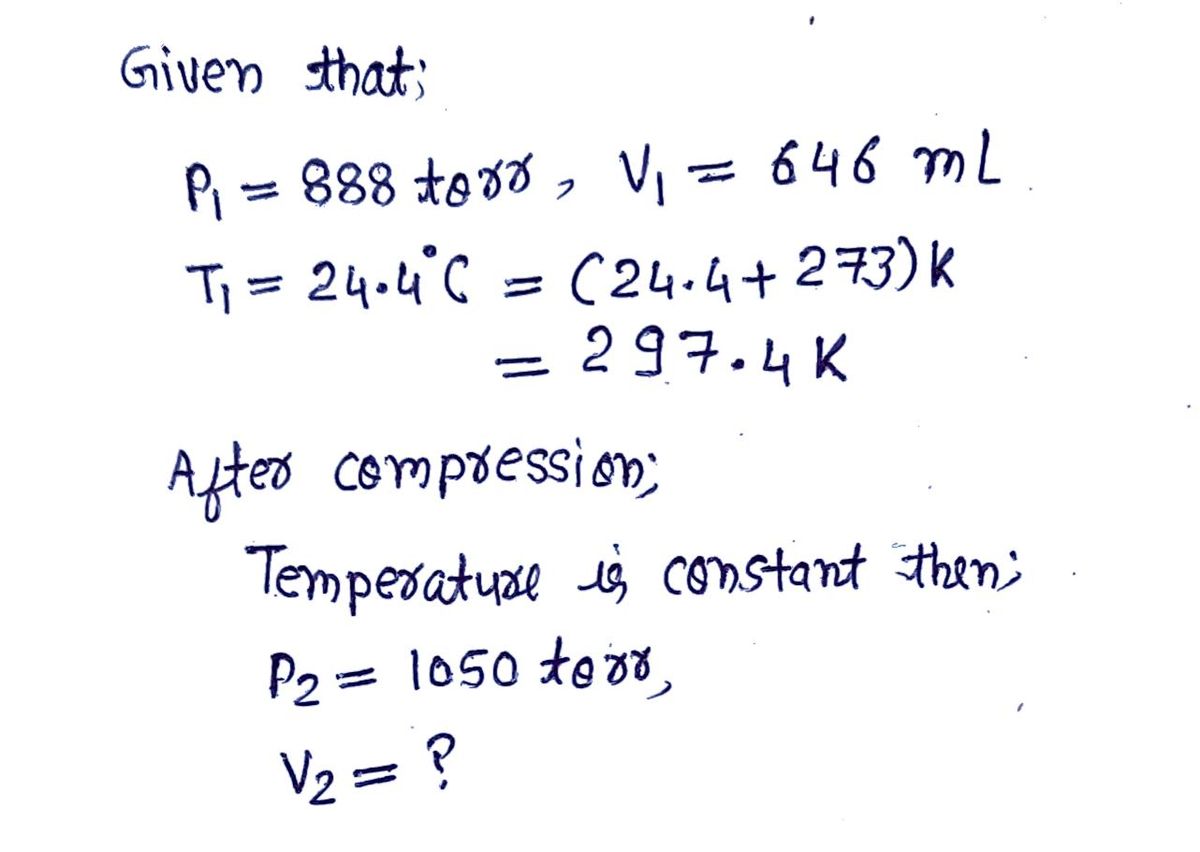 Given that;
P₁ = 888 torr, V₁ = 646 mL
T₁ = 24.4°C = (24.4 + 273)K
= 297.4 K
After compression;
Temperature is constant then;
P₂ = 1050 torr,
V₂ = ?